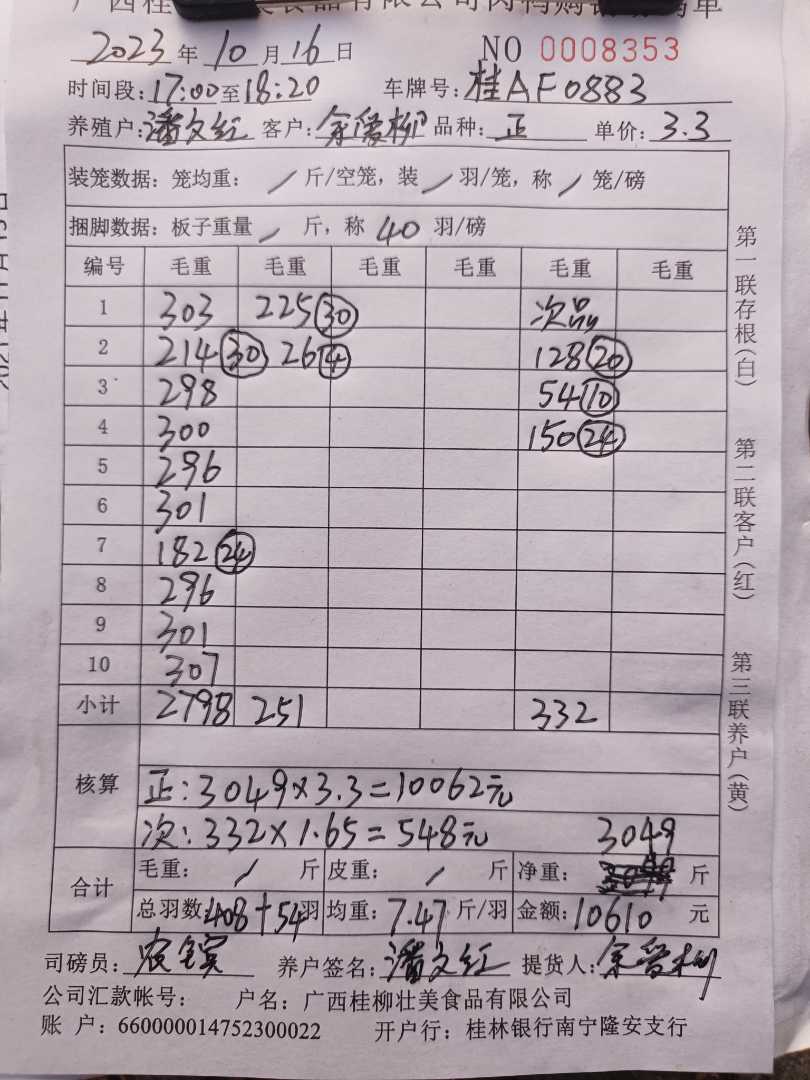 广西桂 美食品有限公司肉鸭购 单
2023年10月16日 NO 0008353
时间段:17:00至18:20 车牌号:桂AF0883
养殖户:潘文红 客户:余爱柳 品种:正 单价:3.3
装笼数据:笼均重: / 斤/空笼,装 / 羽/笼,称 / 笼/磅
捆脚数据:板子重量 / 斤,称 40 羽/磅
编号 毛重 毛重 毛重 毛重 毛重 毛重
1 303 225(30) 次品
2 214(30) 26(4) 128(20)
3 298 54(10)
4 300 150(24)
5 296
6 301
7 182(24)
8 296
9 301
10 307
小计 2798 251 332
核算
正:3049×3.3=10062元
次:332×1.65=548元 3049
合计
毛重: / 斤 皮重: / 斤 净重: 斤
总羽数:408+54羽 均重:7.47斤/羽 金额:10610元
司磅员: 养户签名:潘文红 提货人:余爱柳
公司汇款帐号: 户名:广西桂柳壮美食品有限公司
账 户:660000014752300022 开户行:桂林银行南宁隆安支行
第一联存根(白)
第二联客户(红)
第三联养户(黄)